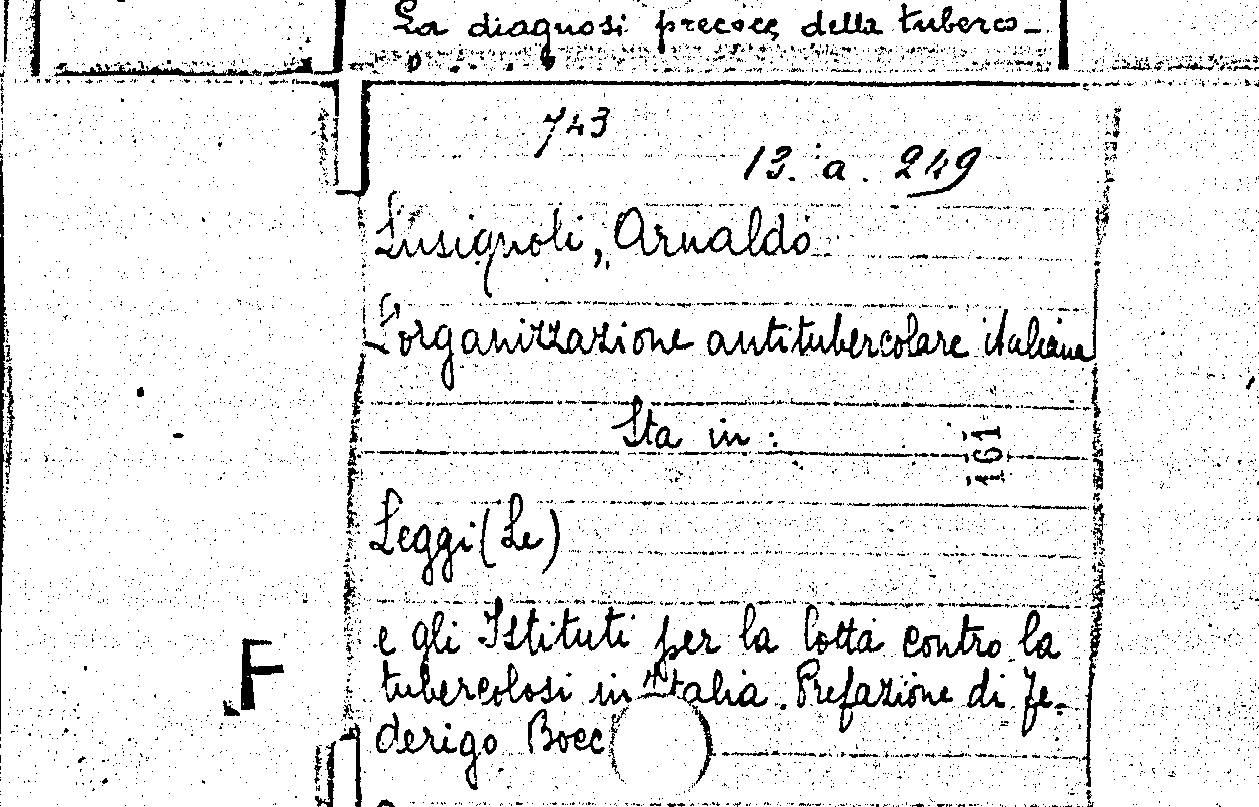 La diagnosi precoce della tuberco-
743
13. a. 249
Lusignoli, Arnaldo
L'organizzazione antitubercolare italiana
Sta in:
161
Leggi (Le)
e gli Istituti per la lotta contro la
tubercolosi in Italia. Prefazione di Fe-
derigo Bocc
F